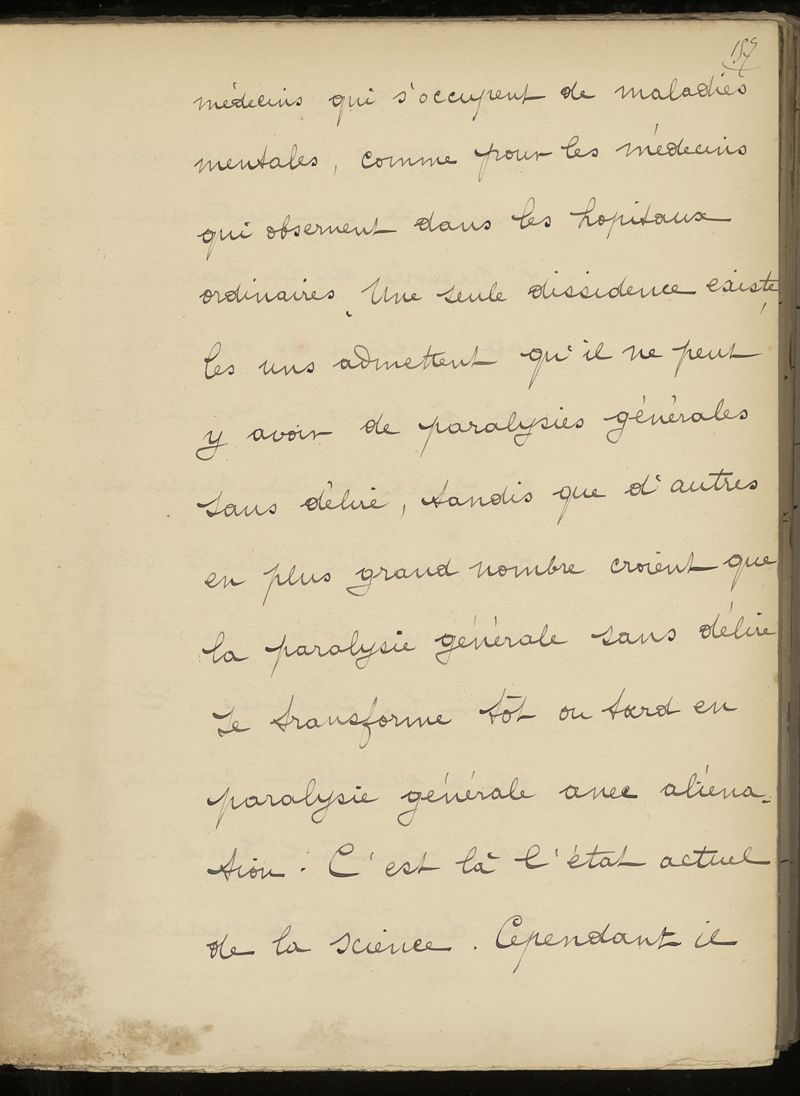 157
médecins qui s'occupent de maladies
mentales, comme pour les médecins
qui observent dans les hopitaux
ordinaires. Une seule dissidence existe,
les uns admettent qu'il ne peut
y avoir de paralysies générales
sans délire, tandis que d'autres
en plus grand nombre croient que
la paralysie générale sans délire
se transforme tôt ou tard en
paralysie générale avec aliéna-
tion. C'est là l'état actuel
de la science. Cependant il